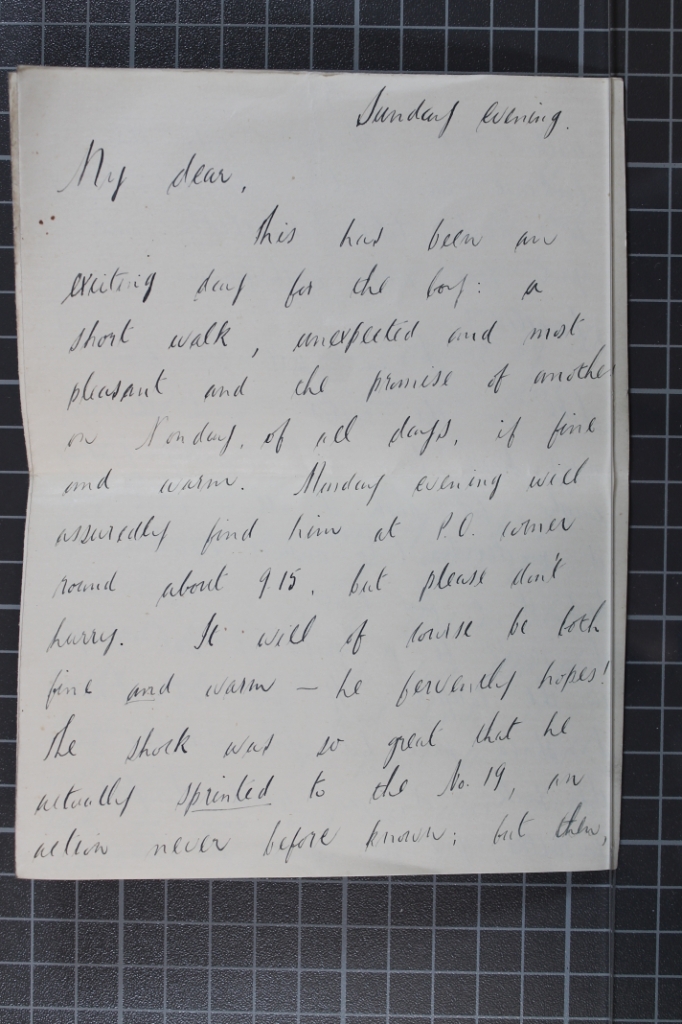 Sunday evening.
My dear,
This has been an
exciting day for the boy: a
short walk, unexpected and most
pleasant and the promise of another
on Monday, of all days, if fine
and warm. Monday evening will
assuredly find him at P.O. corner
round about 9.15, but please don't
hurry. It will of course be both
fine and warm – he fervently hopes!
The shock was so great that he
actually sprinted to the No. 19, an
action never before known; but then,